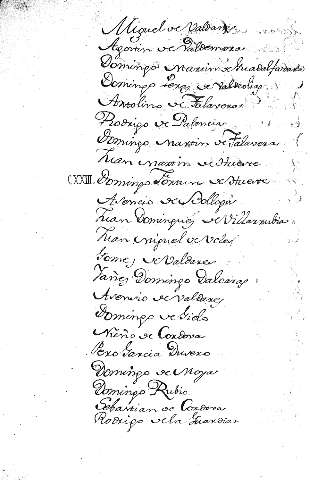 Miguel de Valdaxe
Agostin de Valdemoza
Domingo Martin de Guadalfaxara
Domingo Perez de Valdolias
Antolino de Talavera
Rodrigo de Palencia
Domingo Martin de Talavera
Juan Martin de Huete
CXXIII. Domingo Ferran de Huete
Asencio de
Juan Dominguez de Villarrubia
Juan Miguel de Veles
Gomez de Valdaxe
Yañez Domingo
Asensio de Valdaxes
Domingo de
Niño de Cordova
Pero Garcia
Domingo de Moya
Domingo Rubio
Sebastian de Cordova
Rodrigo de la Guardia